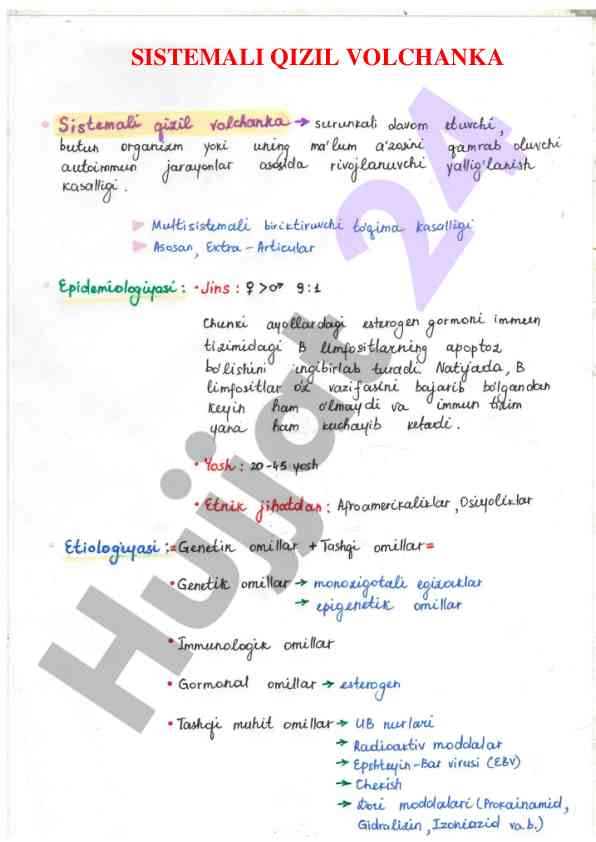 SISTEMALI QIZIL VOLCHANKA
• Sistemali qizil volchanka → surunkali davom etuvchi,
butun organizm yoki uning ma'lum a'zosini qamrab oluvchi
autoimmun jarayonlar asosida rivojlanuvchi yallig'lanish
kasalligi.
Multisistemali biriktiruvchi to'qima kasalligi
Asosan, Extra-Articular
Epidemiologiyasi: • Jins: ♀>♂ 9:1
Chunki ayollardagi esterogen gormoni immun
tizimidagi B limfositlarning apoptoz
bo'lishini ingibirlab turadi. Natijada, B
limfositlar o'z vazifasini bajarib bo'lgandan
keyin ham o'lmaydi va immun tizim
yana ham kuchayib ketadi.
• Yosh: 20-45 yosh
• Etnik jihatdan: Afroamerikaliklar, Osiyoliklar
Etiologiyasi:= Genetik omillar + Tashqi omillar=
• Genetik omillar → monozigotali egizaklar
→ epigenetik omillar
• Immunologik omillar
• Gormonal omillar → esterogen
• Tashqi muhit omillar → UB nurlari
→ Radioaktiv moddalar
→ Epshteyin-Bar virusi (EBV)
→ Chekish
→ Dori moddalari (Prokainamid,
Gidralizin, Izoniazid va b.)
Hujjat 24